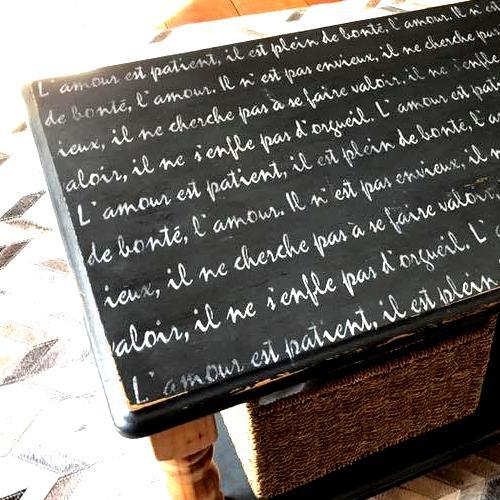 L'amour est patient, il est plein de bonté, l'amour. Il n'est
de bonté, l'amour. Il n'est pas envieux, il ne cherche pas
ieux, il ne cherche pas à se faire valoir, il ne s'enfle
aloir, il ne s'enfle pas d'orgueil. L'amour est pat
L'amour est patient, il est plein de bonté, l'a
de bonté, l'amour. Il n'est pas envieux, il n
ieux, il ne cherche pas à se faire valoir
valoir, il ne s'enfle pas d'orgueil. L'a
L'amour est patient, il est plein